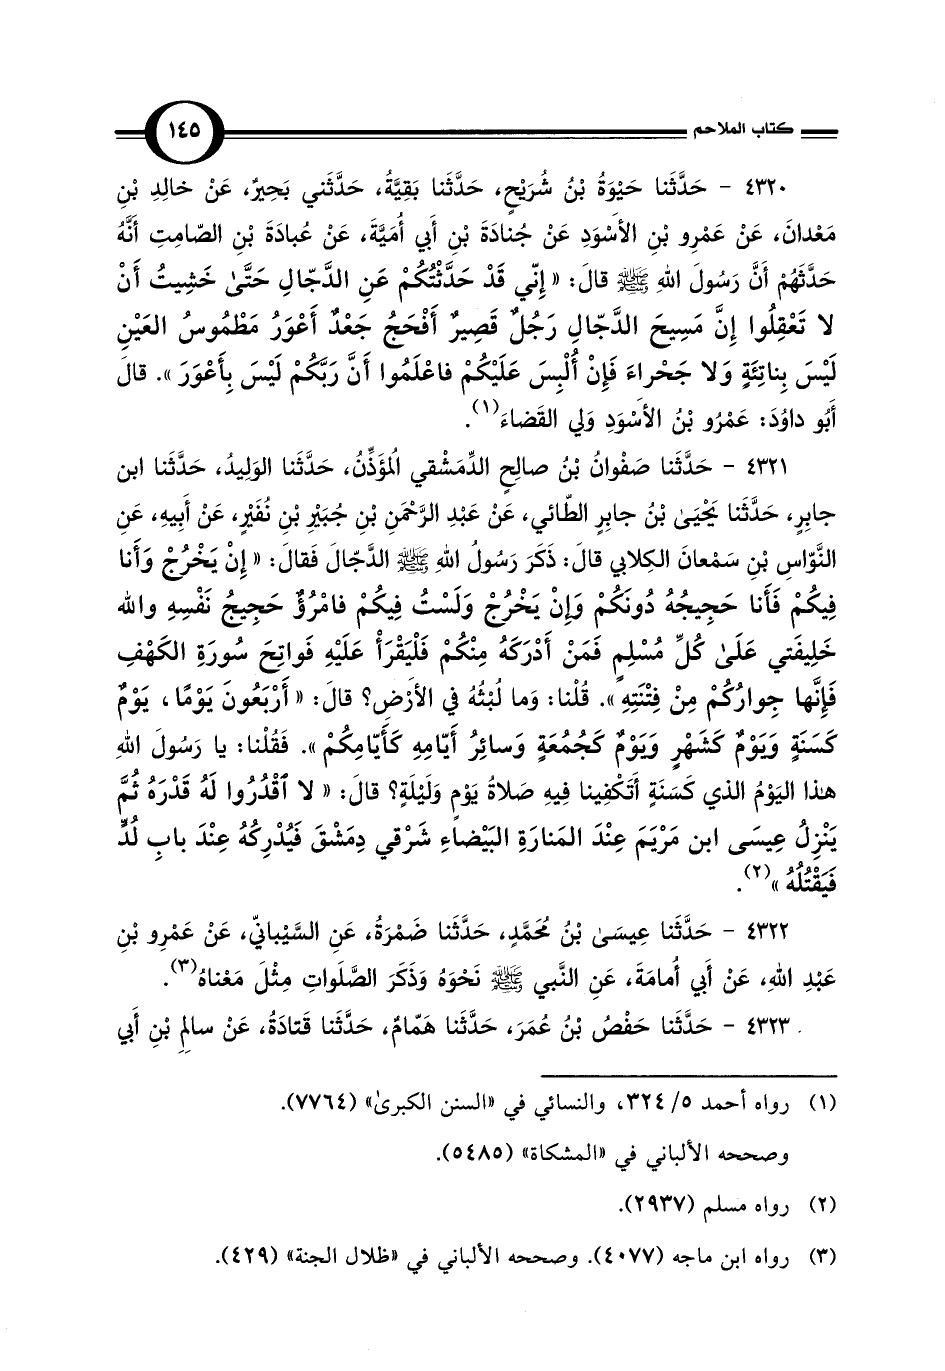 كتاب الملاحم ١٤٥
٤٣٢٠ - حَدَّثَنا حَيْوَةُ بْنُ شُرَيْحٍ، حَدَّثَنا بَقِيَّةُ، حَدَّثَني بَحِيرٌ، عَنْ خالِدِ بْنِ
مَعْدانَ، عَنْ عَمْرِو بْنِ الأَسْوَدِ عَنْ جُنادَةَ بْنِ أَبي أُمَيَّةَ، عَنْ عُبادَةَ بْنِ الصّامِتِ أَنَّهُ
حَدَّثَهُمْ أَنَّ رَسُولَ اللهِ ﷺ قالَ: « إِنّي قَدْ حَدَّثْتُكُمْ عَنِ الدَّجّالِ حَتَّىٰ خَشِيتُ أَنْ
لا تَعْقِلُوا إِنَّ مَسِيحَ الدَّجّالِ رَجُلٌ قَصِيرٌ أَفْحَجُ جَعْدٌ أَعْوَرُ مَطْمُوسُ العَيْنِ
لَيْسَ بِناتِئَةٍ وَلا جَحْراءَ فَإِنْ أُلْبِسَ عَلَيْكُمْ فاعْلَمُوا أَنَّ رَبَّكُمْ لَيْسَ بِأَعْوَرَ ». قالَ
أَبُو داوُدَ: عَمْرُو بْنُ الأَسْوَدِ وَلي القَضاءَ(١).
٤٣٢١ - حَدَّثَنا صَفْوانُ بْنُ صالِحٍ الدِّمَشْقي المُؤَذِّنُ، حَدَّثَنا الوَلِيدُ، حَدَّثَنا ابن
جابِرٍ، حَدَّثَنا يَحْيَىٰ بْنُ جابِرٍ الطّائي، عَنْ عَبْدِ الرَّحْمَنِ بْنِ جُبَيْرِ بْنِ نُفَيْرٍ، عَنْ أَبِيهِ، عَنِ
النَّوّاسِ بْنِ سَمْعانَ الكِلابي قالَ: ذَكَرَ رَسُولُ اللهِ ﷺ الدَّجّالَ فَقالَ: « إِنْ يَخْرُجْ وَأَنا
فِيكُمْ فَأَنا حَجِيجُهُ دُونَكُمْ وَإِنْ يَخْرُجْ وَلَسْتُ فِيكُمْ فامْرُؤٌ حَجِيجُ نَفْسِهِ والله
خَلِيفَتي عَلَىٰ كُلِّ مُسْلِمٍ فَمَنْ أَدْرَكَهُ مِنْكُمْ فَلْيَقْرَأْ عَلَيْهِ فَواتِحَ سُورَةِ الكَهْفِ
فَإِنَّها جِوارُكُمْ مِنْ فِتْنَتِهِ ». قُلْنا: وَما لُبْثُهُ في الأَرْضِ؟ قالَ: « أَرْبَعُونَ يَوْمًا، يَوْمٌ
كَسَنَةٍ وَيَوْمٌ كَشَهْرٍ وَيَوْمٌ كَجُمُعَةٍ وَسائِرُ أَيّامِهِ كَأَيّامِكُمْ ». فَقُلْنا: يا رَسُولَ اللهِ
هذا اليَوْمُ الذي كَسَنَةٍ أَتَكْفِينا فِيهِ صَلاةُ يَوْمٍ وَلَيْلَةٍ؟ قالَ: « لا ٱقْدُرُوا لَهُ قَدْرَهُ ثُمَّ
يَنْزِلُ عِيسَى ابن مَرْيَمَ عِنْدَ المَنارَةِ البَيْضاءِ شَرْقي دِمَشْقَ فَيُدْرِكُهُ عِنْدَ بابِ لُدٍّ
فَيَقْتُلُهُ »(٢).
٤٣٢٢ - حَدَّثَنا عِيسَىٰ بْنُ مُحَمَّدٍ، حَدَّثَنا ضَمْرَةُ، عَنِ السَّيْبانيِّ، عَنْ عَمْرِو بْنِ
عَبْدِ اللهِ، عَنْ أَبي أُمامَةَ، عَنِ النَّبي ﷺ نَحْوَهُ وَذَكَرَ الصَّلَواتِ مِثْلَ مَعْناهُ(٣).
٤٣٢٣ - حَدَّثَنا حَفْصُ بْنُ عُمَرَ، حَدَّثَنا هَمّامٌ، حَدَّثَنا قَتادَةُ، عَنْ سالِمِ بْنِ أَبي
(١) رواه أحمد ٥/ ٣٢٤، والنسائي في «السنن الكبرىٰ» (٧٧٦٤).
وصححه الألباني في «المشكاة» (٥٤٨٥).
(٢) رواه مسلم (٢٩٣٧).
(٣) رواه ابن ماجه (٤٠٧٧). وصححه الألباني في «ظلال الجنة» (٤٢٩).